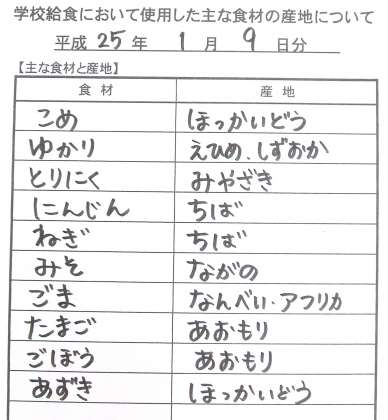 学校給食において使用した主な食材の産地について
平成 25 年 1 月 9 日分
【主な食材と産地】
食材 産地
こめ ほっかいどう
ゆかり えひめ、しずおか
とりにく みやざき
にんじん ちば
ねぎ ちば
みそ ながの
ごま なんべい・アフリカ
たまご あおもり
ごぼう あおもり
あずき ほっかいどう